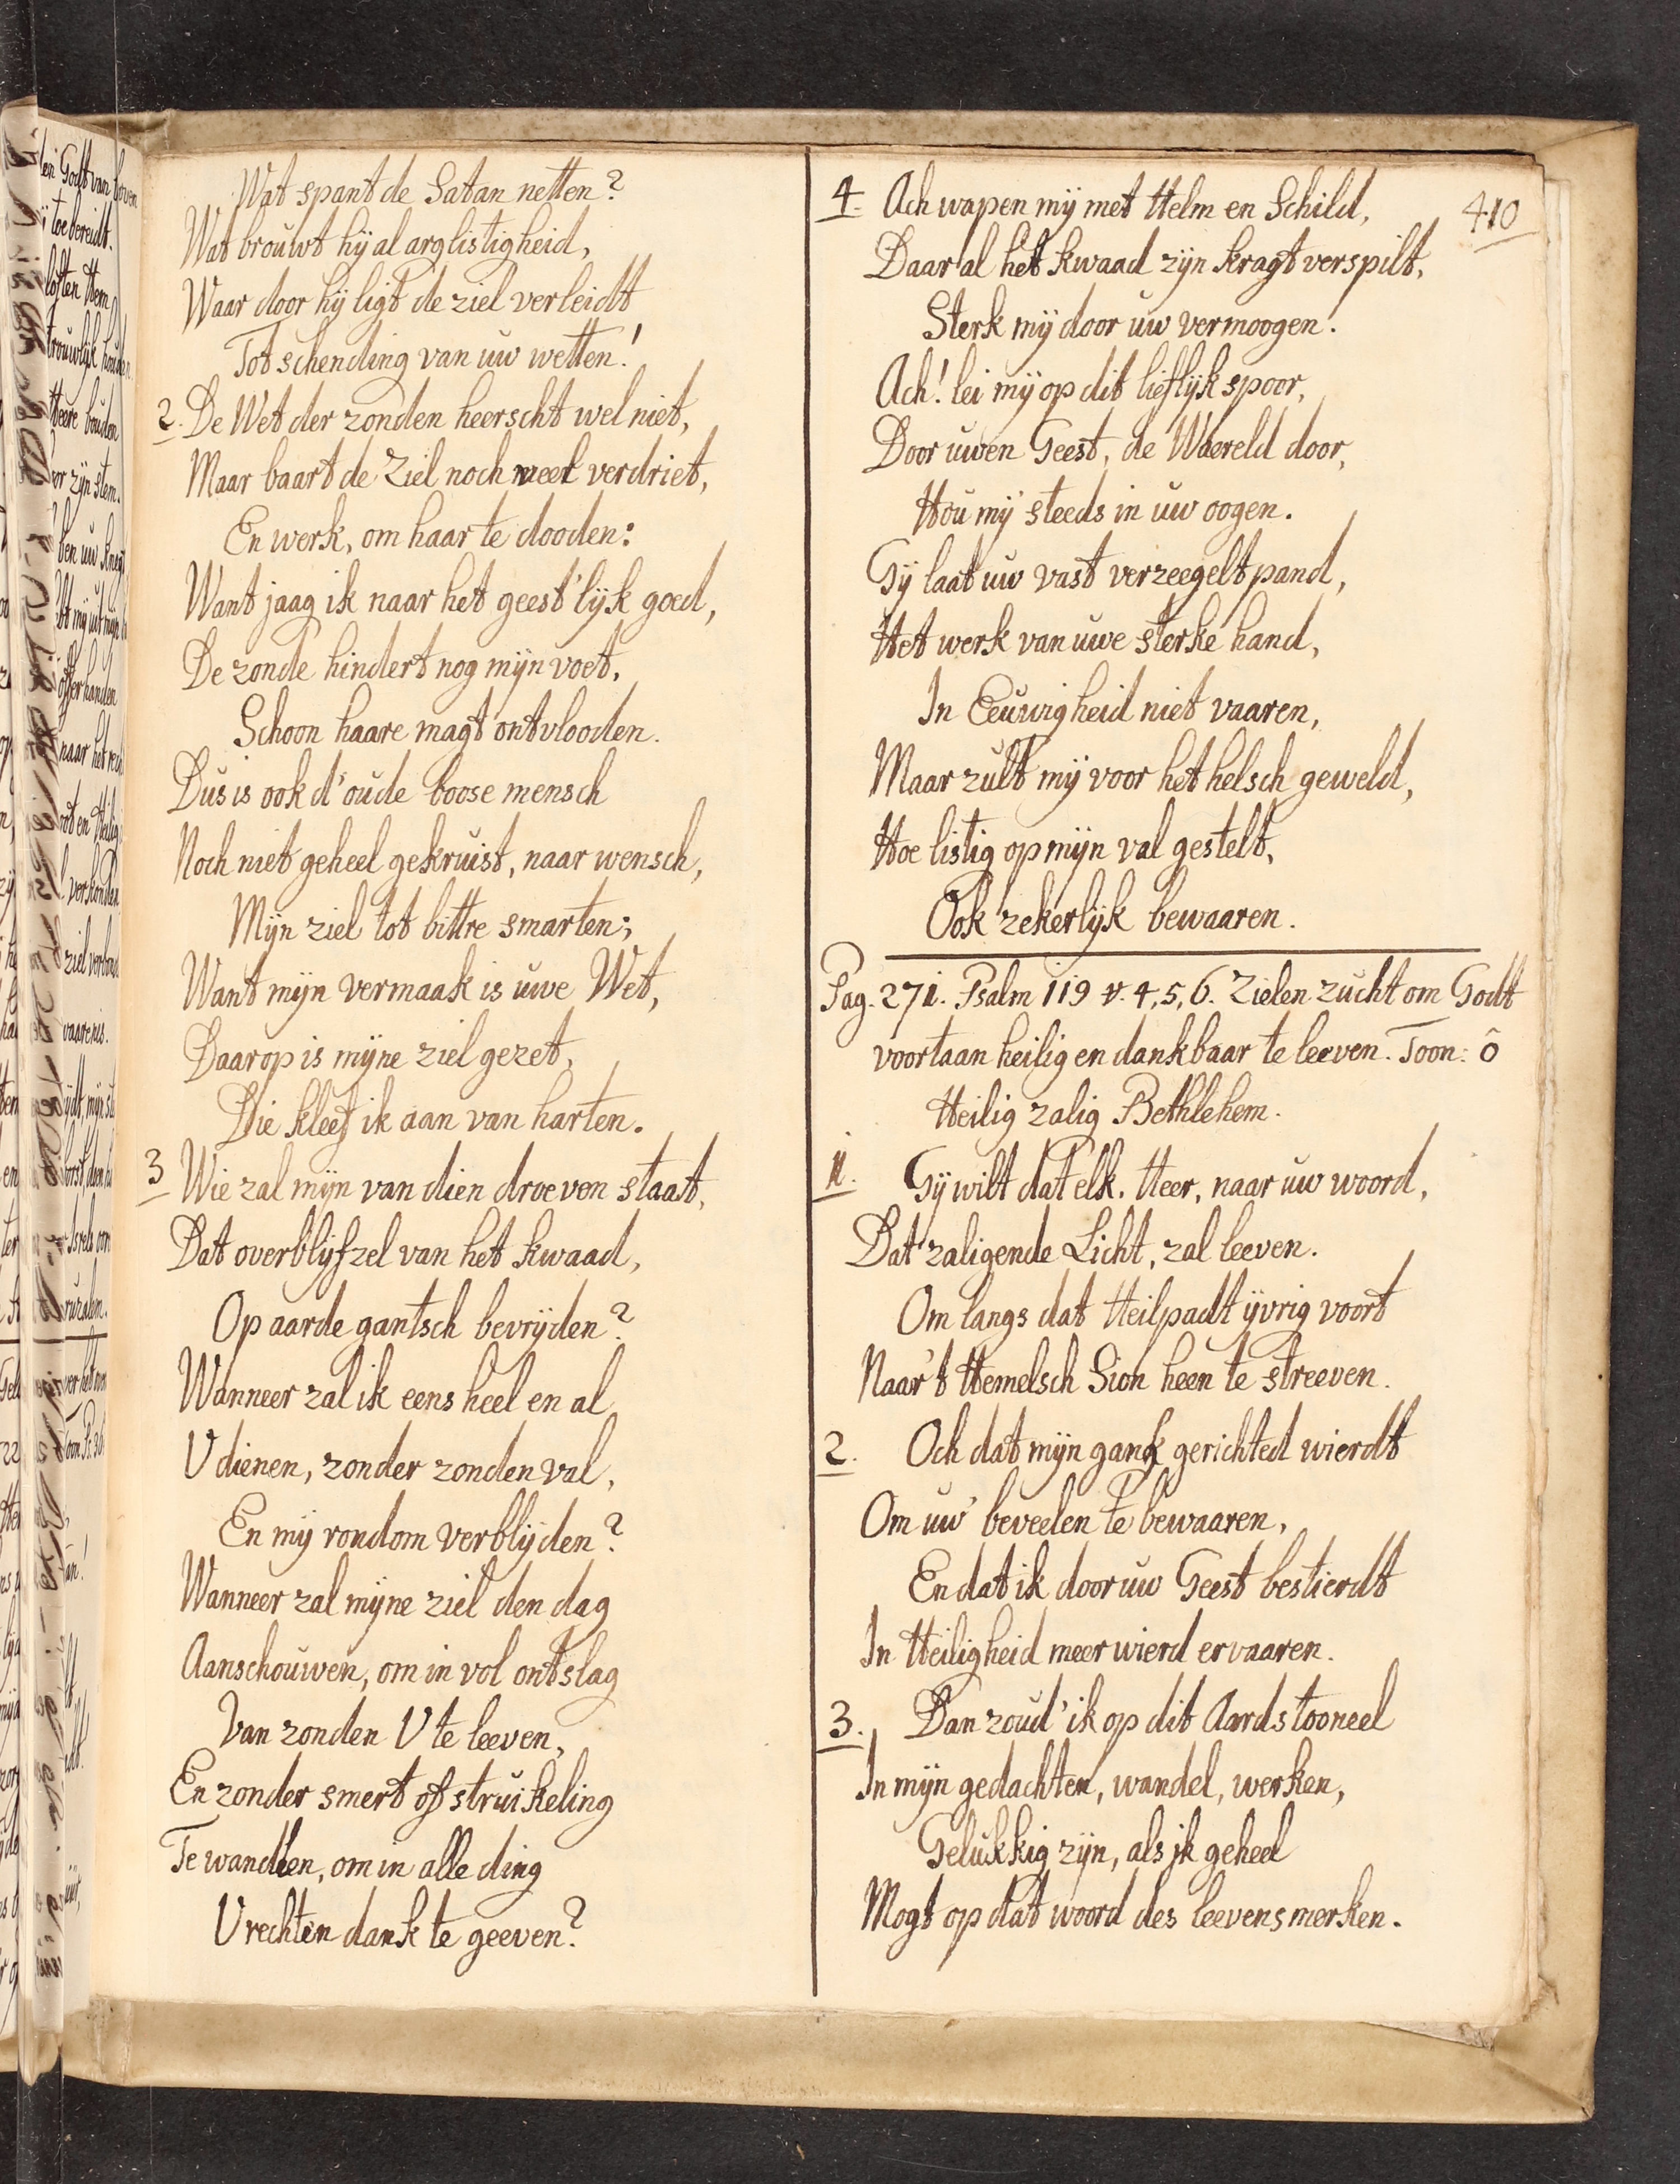 Wat spant de Satan netten?
Wat brouwt hij al arglistigheid,
Waar door hij ligt de ziel verleidt
Tot schending van uw wetten!
2. De Wet der zonden heerscht wel niet,
Maar baart de Ziel noch veel verdriet,
En werk, om haar te dooden:
Want jaag ik naar het geest'lijk goed,
De zonde hindert nog mijn voet,
Schoon haare magt ontvlooden.
Dus is ook d'oude boose mensch
Noch niet geheel gekruist, naar wensch,
Mijn ziel tot bittre smarten;
Want mijn vermaak is uwe Wet,
Daar op is mijne ziel gezet,
Die kleef ik aan van harten.
3 Wie zal mijn van dien droeven staat,
Dat overblijfzel van het kwaad,
Op aarde gantsch bevrijden?
Wanneer zal ik eens heel en al
U dienen, zonder zonden val,
En mij rondom verblijden?
Wanneer zal mijne ziel den dag
Aanschouwen, om in vol ontslag
Van zonden U te leeven,
En zonder smert of struikeling
Te wandlen, om in alle ding
U rechten dank te geeven?
410
4. Ach wapen mij met Helm en Schild,
Daar al het kwaad zijn kragt verspilt,
Sterk mij door uw vermoogen!
Ach! lei mij op dit lieflijk spoor,
Door uwen Geest, de Waereld door,
Hou mij steeds in uw oogen.
Gij laat uw vast verzeegelt pand,
Het werk van uwe sterke hand,
In Eeuwigheid niet vaaren,
Maar zult mij voor het helsch geweld,
Hoe listig op mijn val gestelt,
Ook zekerlijk bewaaren.
Pag. 271. Psalm 119 v. 4, 5, 6. Zielen zucht om Godt
voortaan heilig en dankbaar te leeven. Toon: ô
Heilig zalig Bethlehem.
1. Gij wilt dat elk, Heer, naar uw woord,
Dat zaligende Licht, zal leeven.
Om langs dat Heilpadt ijvrig voort
Naar 't Hemelsch Sion heen te streeven.
2. Och dat mijn gank gerichted wierdt
Om uw beveelen te bewaaren,
En dat ik door uw Geest bestierdt
In Heiligheid meer wierd ervaaren.
3. Dan zoud' ik op dit Aards tooneel
In mijn gedachten, wandel, werken,
Gelukkig zijn, als ik geheel
Mogt op dat woord des leevens merken.